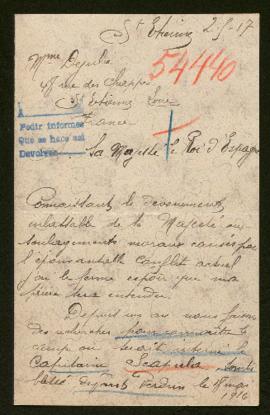 St Etienne 2-5-17
Mme Dejulié
48 rue des Chappes
St Etienne Loire
France
54440
Pedir informes
Que se hace así
Devolver
Sa Majesté le Roi d'Espagne
Connaissant le dévouement
inlassable de sa Majesté aux
soulagements moraux causés par
l'épouvantable conflit actuel
j'ai le ferme espoir que ma
prière sera entendue.
Depuis un an nous faisons
des recherches pour connaître le
camp où serait interné le
Capitaine
blessé devant Verdun le mai
1916